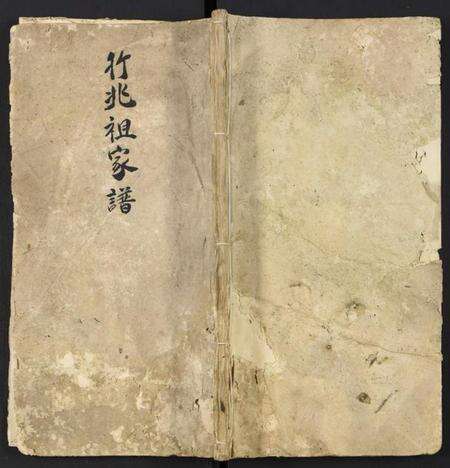 竹兆祖家譜